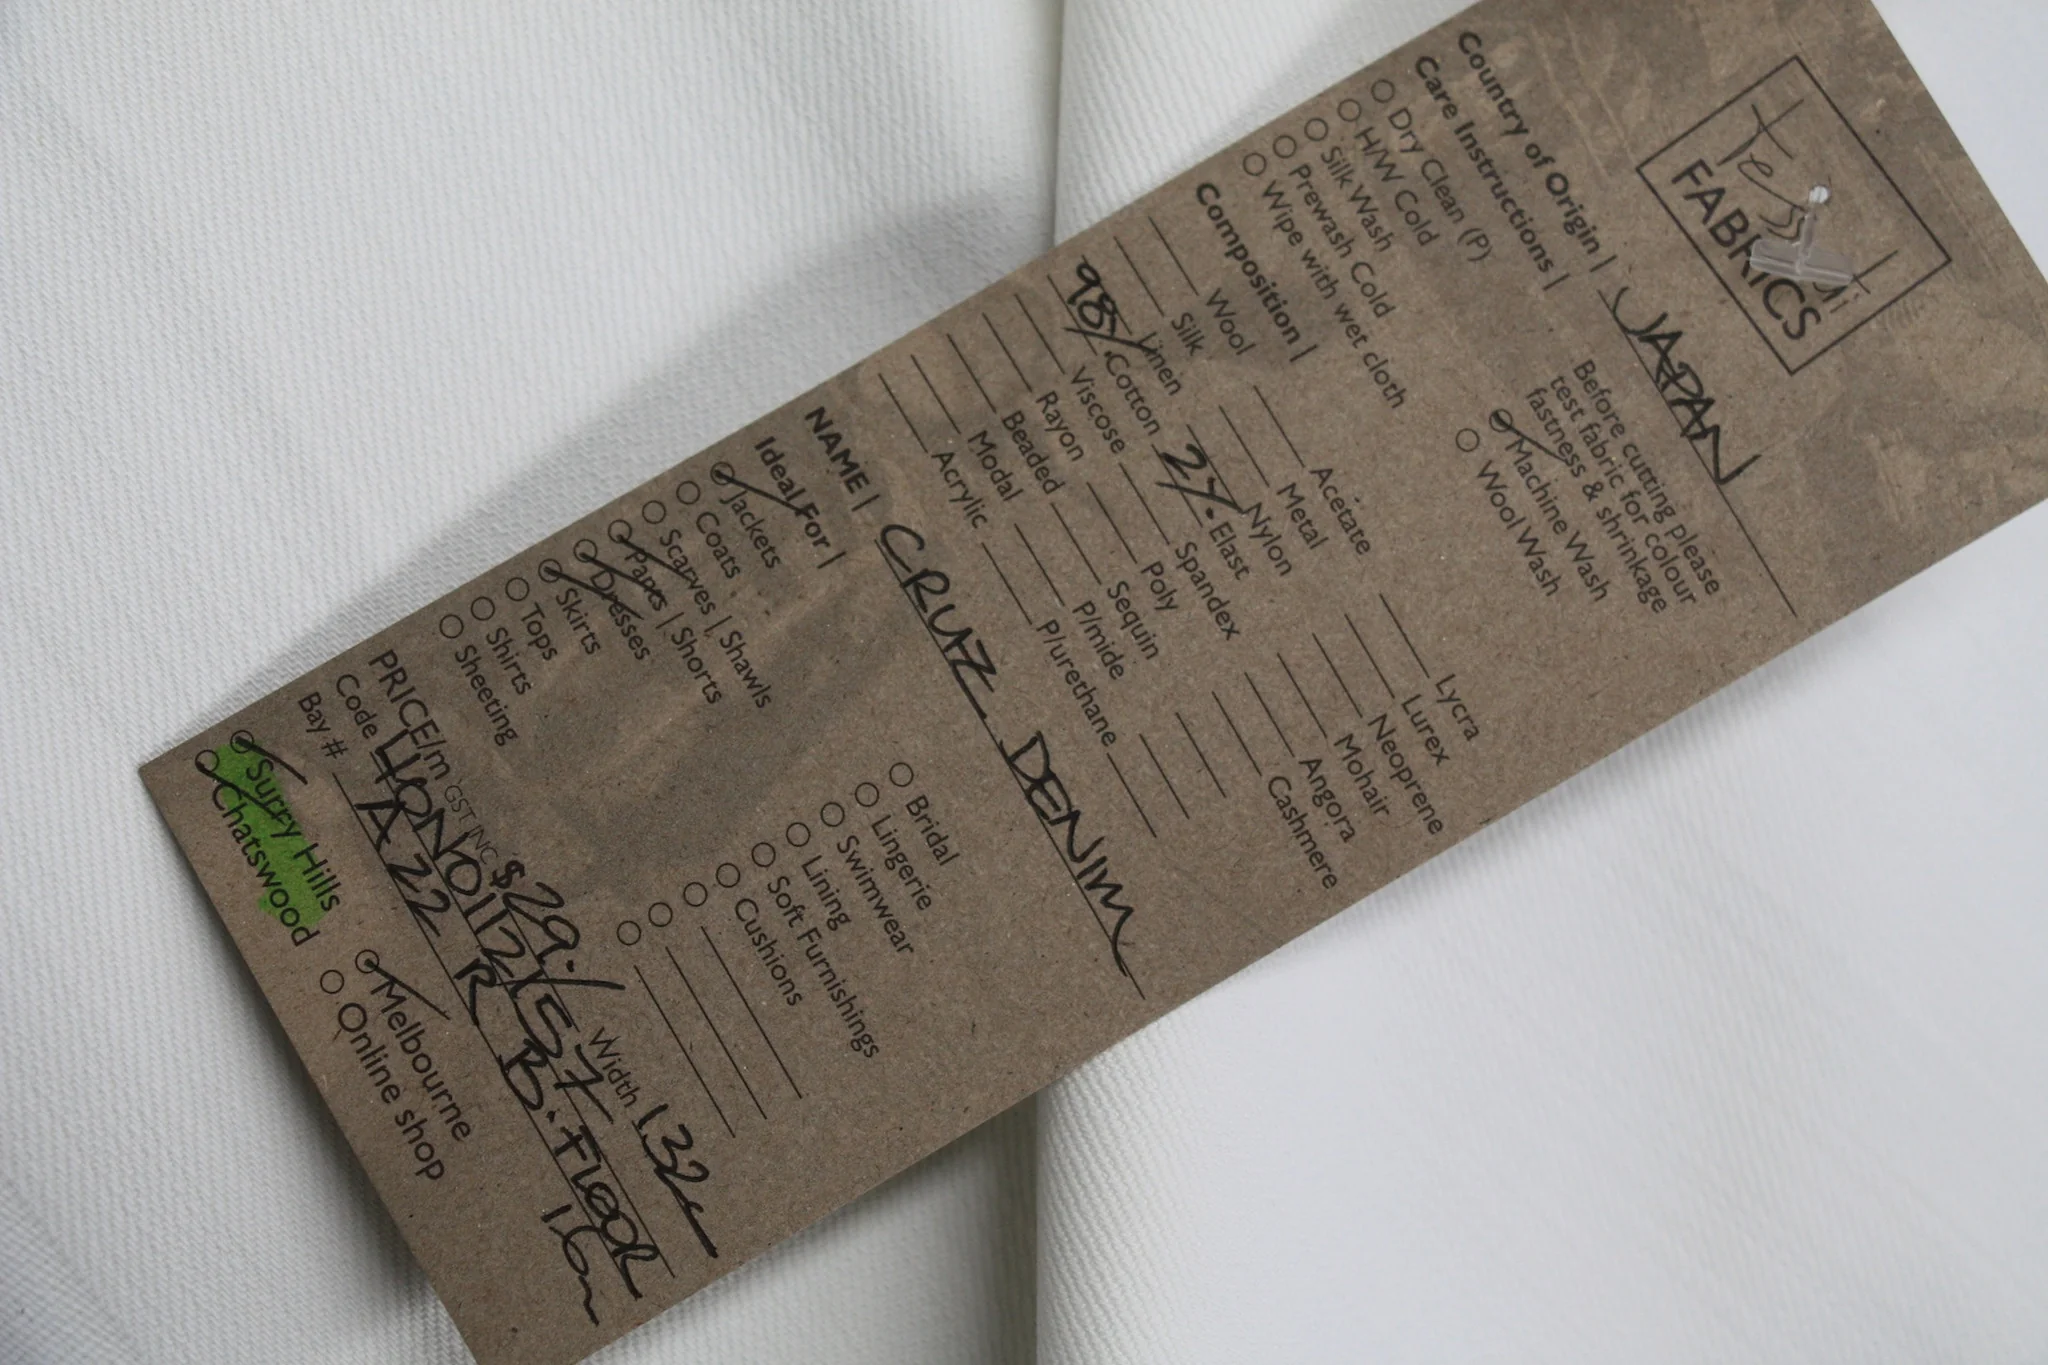 Tessuti
FABRICS
Country of Origin | JAPAN
Care Instructions |
Before cutting please
test fabric for colour
fastness & shrinkage
Dry Clean (P)
H/W Cold
Silk Wash
Prewash Cold
Wipe with wet cloth
Machine Wash
Wool Wash
Composition |
Wool
Silk
Linen
98% Cotton
Viscose
Rayon
Beaded
Modal
Acrylic
Acetate
Metal
Nylon
2% Elast
Spandex
Poly
Sequin
P/mide
P/urethane
Lycra
Lurex
Neoprene
Mohair
Angora
Cashmere
NAME | CRUZ DENIM
Ideal For |
Jackets
Coats
Scarves | Shawls
Pants | Shorts
Dresses
Skirts
Tops
Shirts
Sheeting
Bridal
Lingerie
Swimwear
Lining
Soft Furnishings
Cushions
PRICE/m GST INC $29. Width 132
Code
Bay # A22 R B.FLOOR
Surry Hills
Chatswood
Melbourne
Online shop